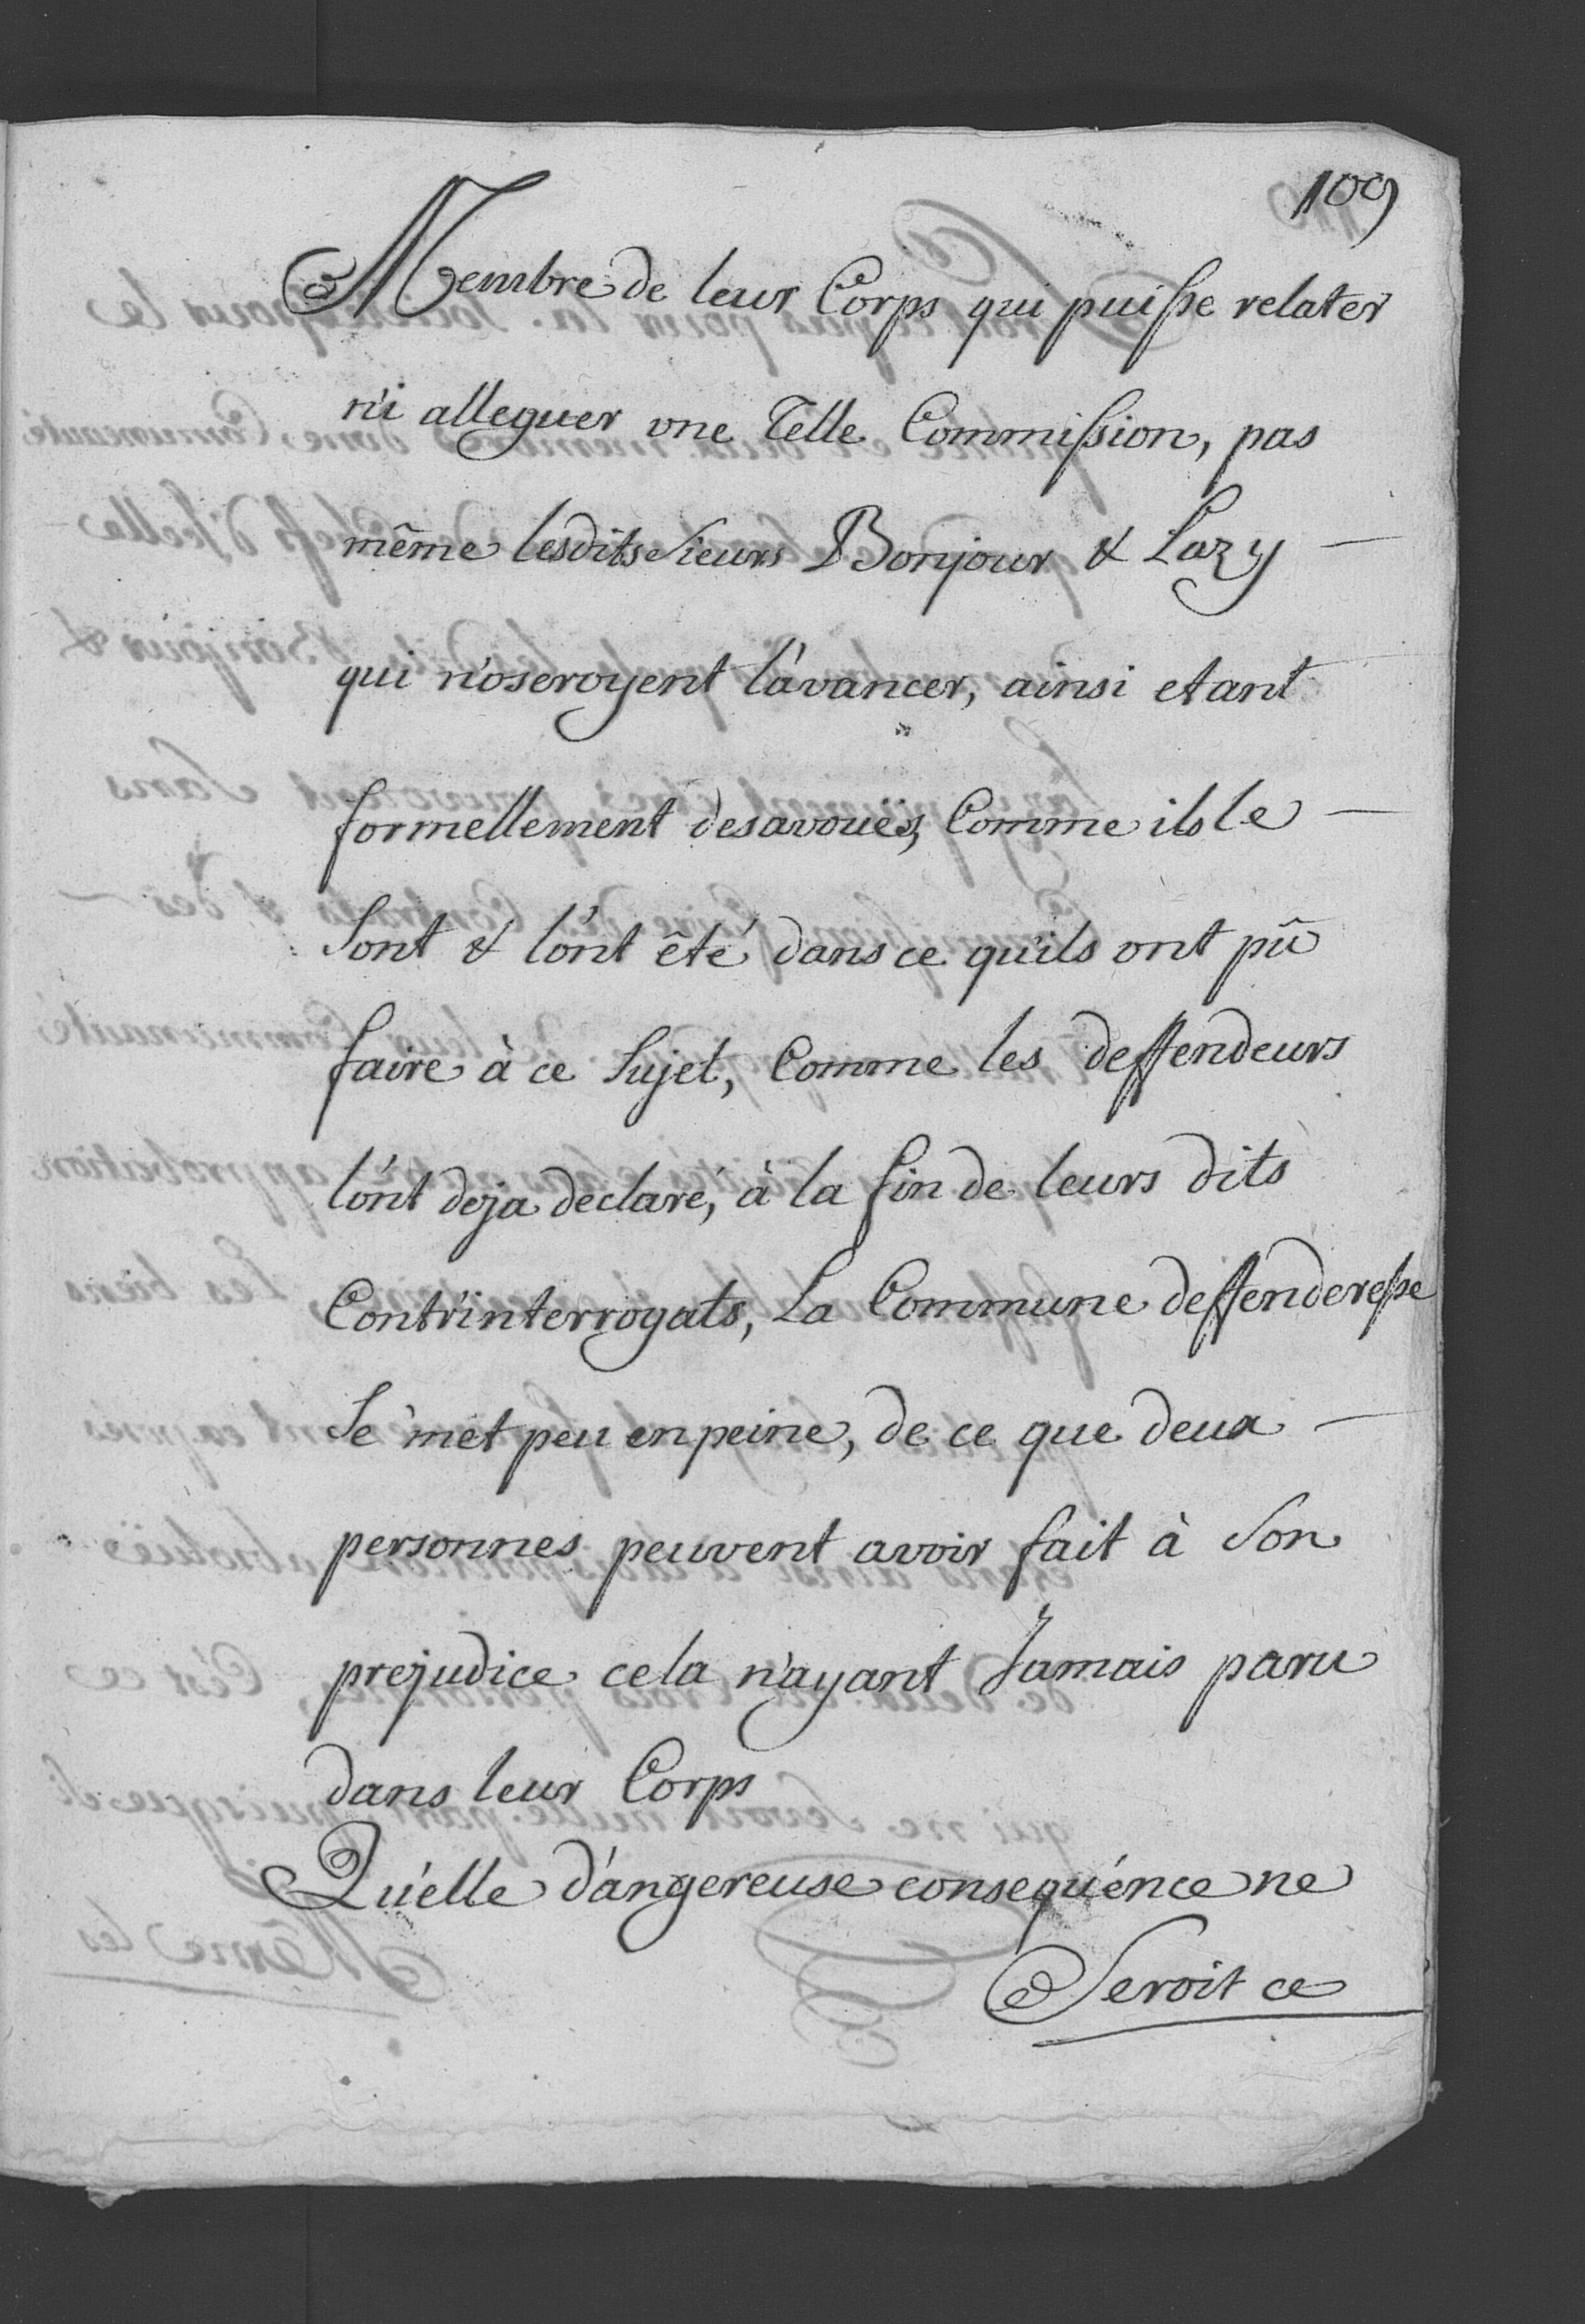 109
Membre de leur Corps qui puisse relater
n'i alleguer une Telle Commission, pas
même lesdits Sieurs Bonjour & Lazy
qui n'oseroyent l'avancer, ainsi etant
formellement desavoués, Comme ils le
Sont & l'ont êté dans ce qu'ils ont pû
faire à ce Sujet, Comme les deffendeurs
l'ont deja declaré, à la fin de leurs dits
Contr'interrogats, La Commune deffenderesse
Se met peu en peine, de ce que deux
personnes peuvent avoir fait à Son
prejudice cela n'ayant Jamais paru
dans leur Corps
Qu'elle d'angereuse consequ'ence ne
Seroit ce